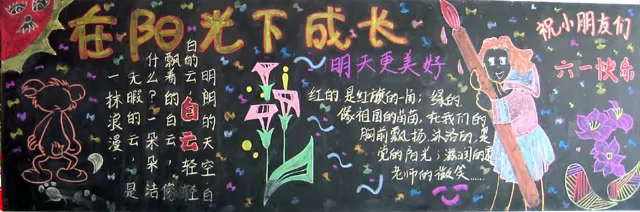 在阳光下成长
明天更美好
祝小朋友们
六一快乐
明朗的天空白
白的云,白云轻轻
飘着的白云,像
什么?一朵朵洁
无暇的云,是
一抹浪漫.
红的是红旗的一角;绿的
像祖国的苗苗,在我们的
胸前飘扬.沐浴的是
党的阳光;滋润的是
老师的微笑……